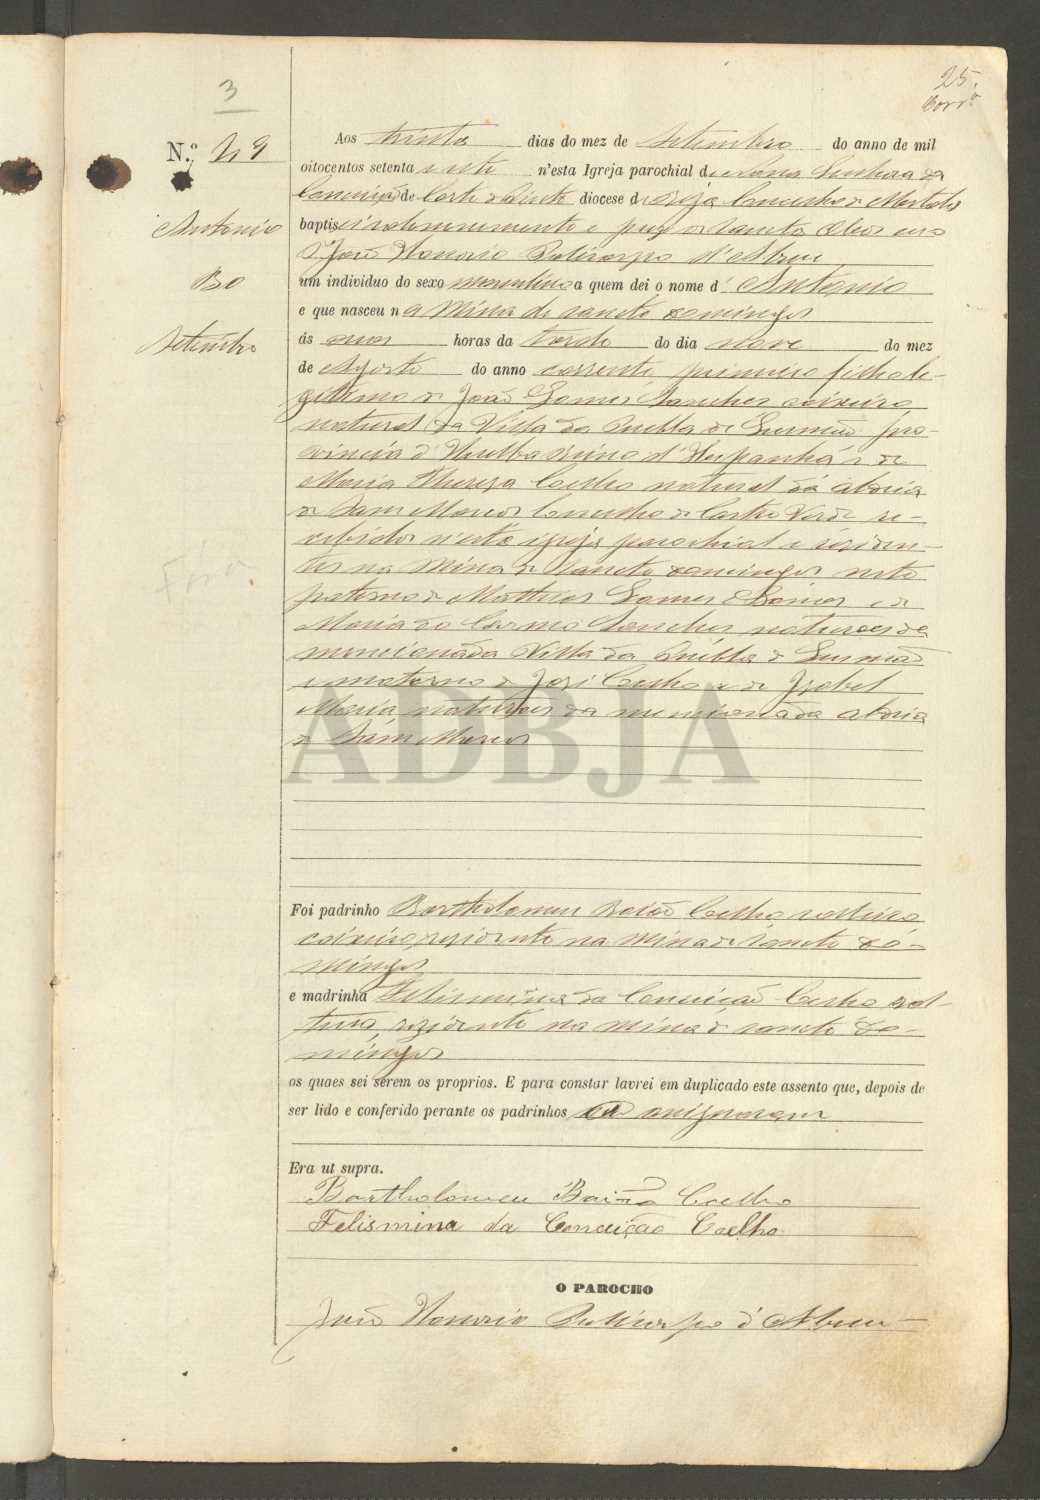 25.
3
N.º 49
Antonio
30
Setembro
Aos trinta dias do mez de Setembro do anno de mil
oitocentos setenta e sete n'esta Igreja parochial de Nossa Senhora da
Conceição de Corte do Pinto diocese de Beja Concelho de Mertola
baptisei solemnemente e puz os sanctos Oleos eu o
P. João Honorio Policarpo d'Abreu
um individuo do sexo masculino a quem dei o nome d' Antonio
e que nasceu na Mina de Sancto Domingos
ás horas da tarde do dia nove do mez
de Agosto do anno corrente primeiro filho le-
gitimo de João Gomes Sanches caixeiro
natural da Villa da Puebla de Gusmão pro-
vincia d'Huelba Reino d'Hespanha e de
Maria Thereza Coelho natural da aldeia
de Sam Marcos Concelho de Castro Verde re-
cebidos n'esta igreja parochial e residen-
tes na Mina de Sancto Domingos neto
paterno de Matheos Gomes e de
Maria do Carmo Sanches naturaes da
mencionada Villa da Puebla de Gusmão
e materno de José Coelho e de Izabel
Maria naturaes da mencionada aldeia
de Sam Marcos
ADBJA
Foi padrinho Bartholomeu Baião Coelho solteiro
caixeiro residente na Mina de Sancto Do-
mingos
e madrinha Felismina da Conceição Coelho sol-
teira, rezidente na Mina de Sancto Do-
mingos
os quaes sei serem os proprios. E para constar lavrei em duplicado este assento que, depois de
ser lido e conferido perante os padrinhos assignaram
Era ut supra.
Bartholomeu Baião Coelho
Felismina da Conceição Coelho
O PAROCHO
João Honorio Policarpo d'Abreu